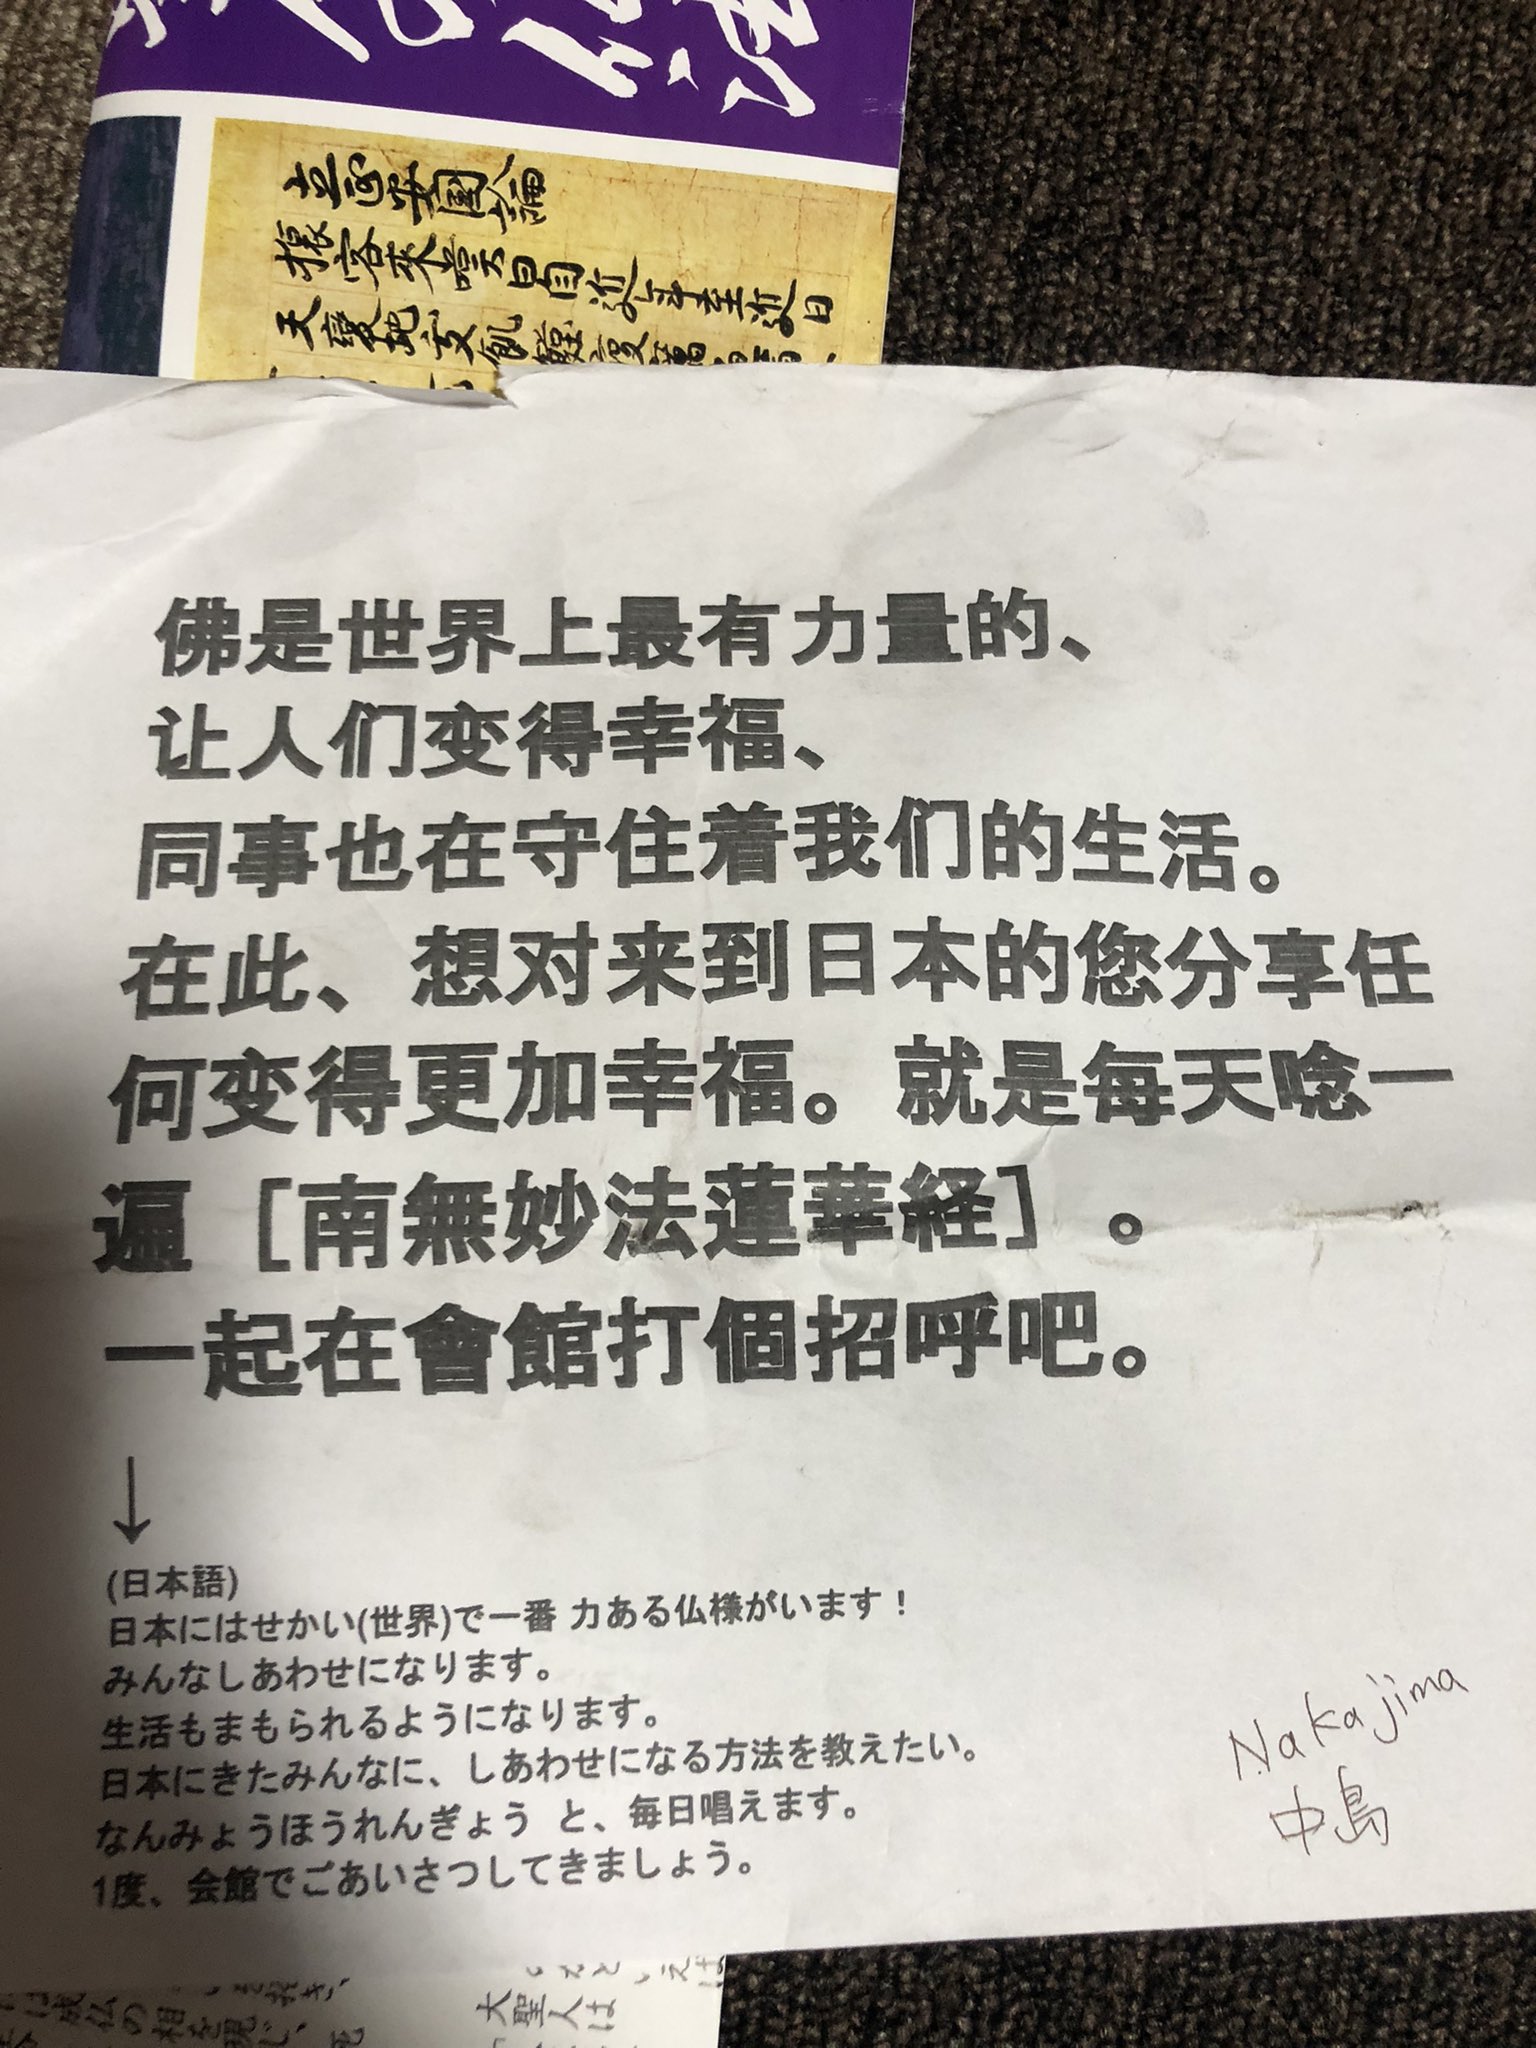 立正安国論
旅客来嘆曰自近年至近日
佛是世界上最有力量的、
让人们变得幸福、
同事也在守住着我们的生活。
在此、想对来到日本的您分享任
何变得更加幸福。就是每天唸一
遍［南無妙法蓮華経］。
一起在會館打個招呼吧。
↓
(日本語)
日本にはせかい(世界)で一番 力ある仏様がいます！
みんなしあわせになります。
生活もまもられるようになります。
日本にきたみんなに、しあわせになる方法を教えたい。
なんみょうほうれんぎょう と、毎日唱えます。
1度、会館でごあいさつしてきましょう。
Nakajima
中島
大聖人は